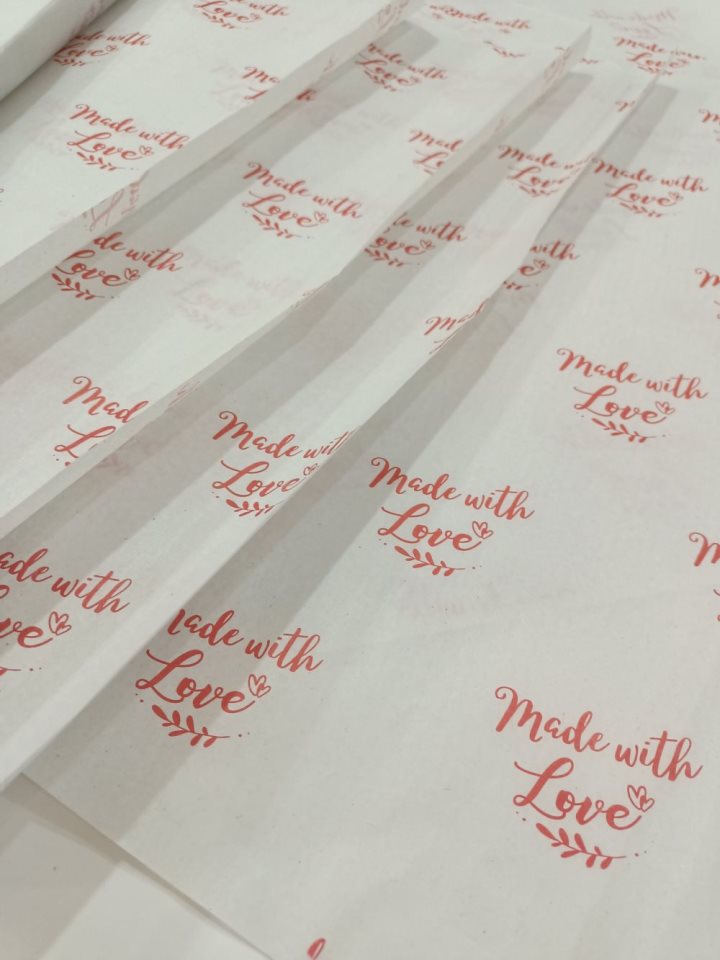 Made with
Love
Made with
Love
Made with
Love
Made with
Love
Made with
Love
Made with
Love
Made with
Love
Made with
Love
Made with
Love
Made with
Love